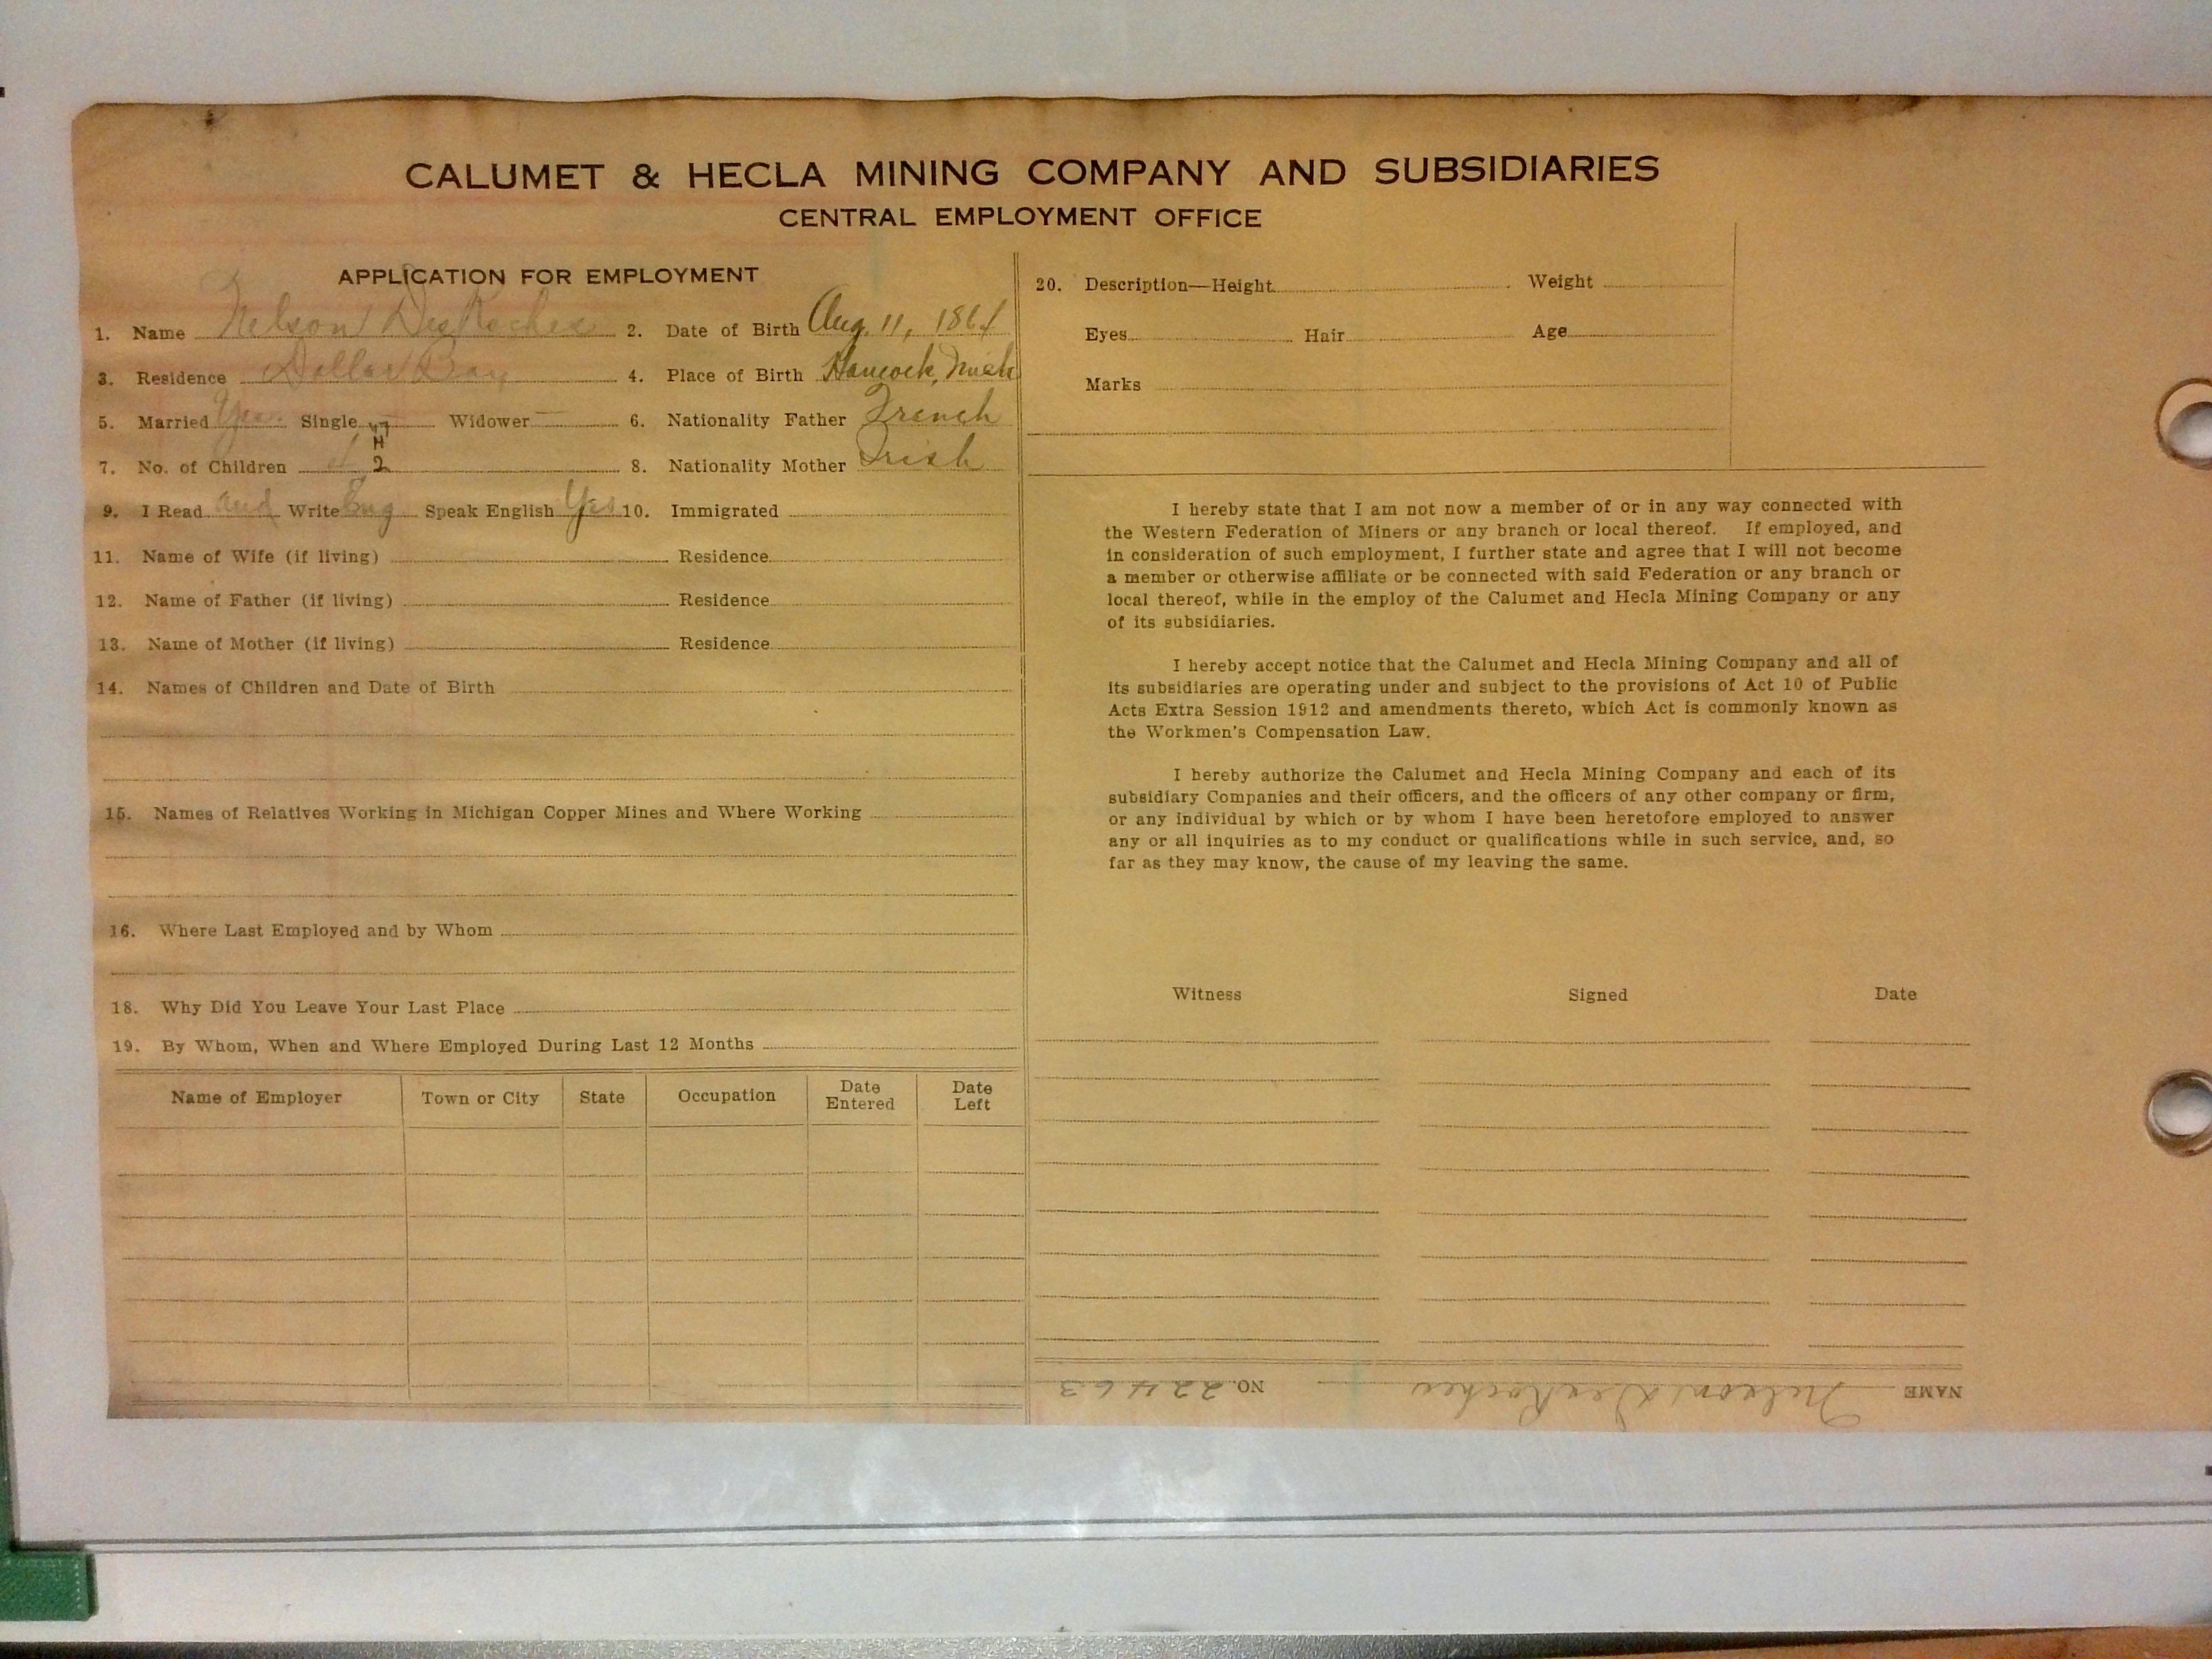 CALUMET & HECLA MINING COMPANY AND SUBSIDIARIES
CENTRAL EMPLOYMENT OFFICE
APPLICATION FOR EMPLOYMENT
1. Name Nelson DesRoches 2. Date of Birth Aug. 11, 1864
3. Residence Dollar Bay 4. Place of Birth Hancock, Mich
5. Married Yes. Single — Widower — 6. Nationality Father French
7. No. of Children 2 8. Nationality Mother Irish
9. I Read and Write Eng Speak English Yes 10. Immigrated
11. Name of Wife (if living) Residence
12. Name of Father (if living) Residence
13. Name of Mother (if living) Residence
14. Names of Children and Date of Birth
15. Names of Relatives Working in Michigan Copper Mines and Where Working
16. Where Last Employed and by Whom
18. Why Did You Leave Your Last Place
19. By Whom, When and Where Employed During Last 12 Months
Name of Employer Town or City State Occupation Date Entered Date Left
20. Description—Height Weight
Eyes Hair Age
Marks
I hereby state that I am not now a member of or in any way connected with
the Western Federation of Miners or any branch or local thereof. If employed, and
in consideration of such employment, I further state and agree that I will not become
a member or otherwise affiliate or be connected with said Federation or any branch or
local thereof, while in the employ of the Calumet and Hecla Mining Company or any
of its subsidiaries.
I hereby accept notice that the Calumet and Hecla Mining Company and all of
its subsidiaries are operating under and subject to the provisions of Act 10 of Public
Acts Extra Session 1912 and amendments thereto, which Act is commonly known as
the Workmen's Compensation Law.
I hereby authorize the Calumet and Hecla Mining Company and each of its
subsidiary Companies and their officers, and the officers of any other company or firm,
or any individual by which or by whom I have been heretofore employed to answer
any or all inquiries as to my conduct or qualifications while in such service, and, so
far as they may know, the cause of my leaving the same.
Witness Signed Date
NAME Nelson DesRoches NO. 22463